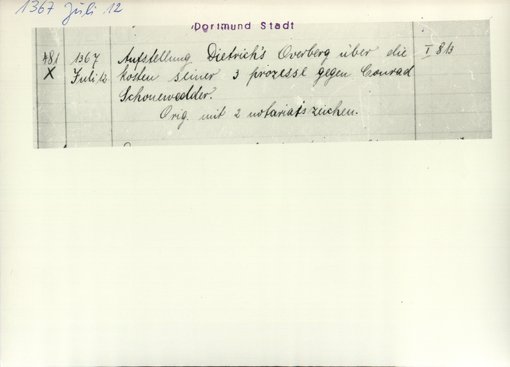 1367 Juli 12
Dortmund Stadt
481 1367 Aufstellung Dietrich's Overberg über die I 813
X Juli 12. kosten seiner 3 prozesse gegen Conrad
Schonewedder.
Orig. mit 2 notariatszeichen.